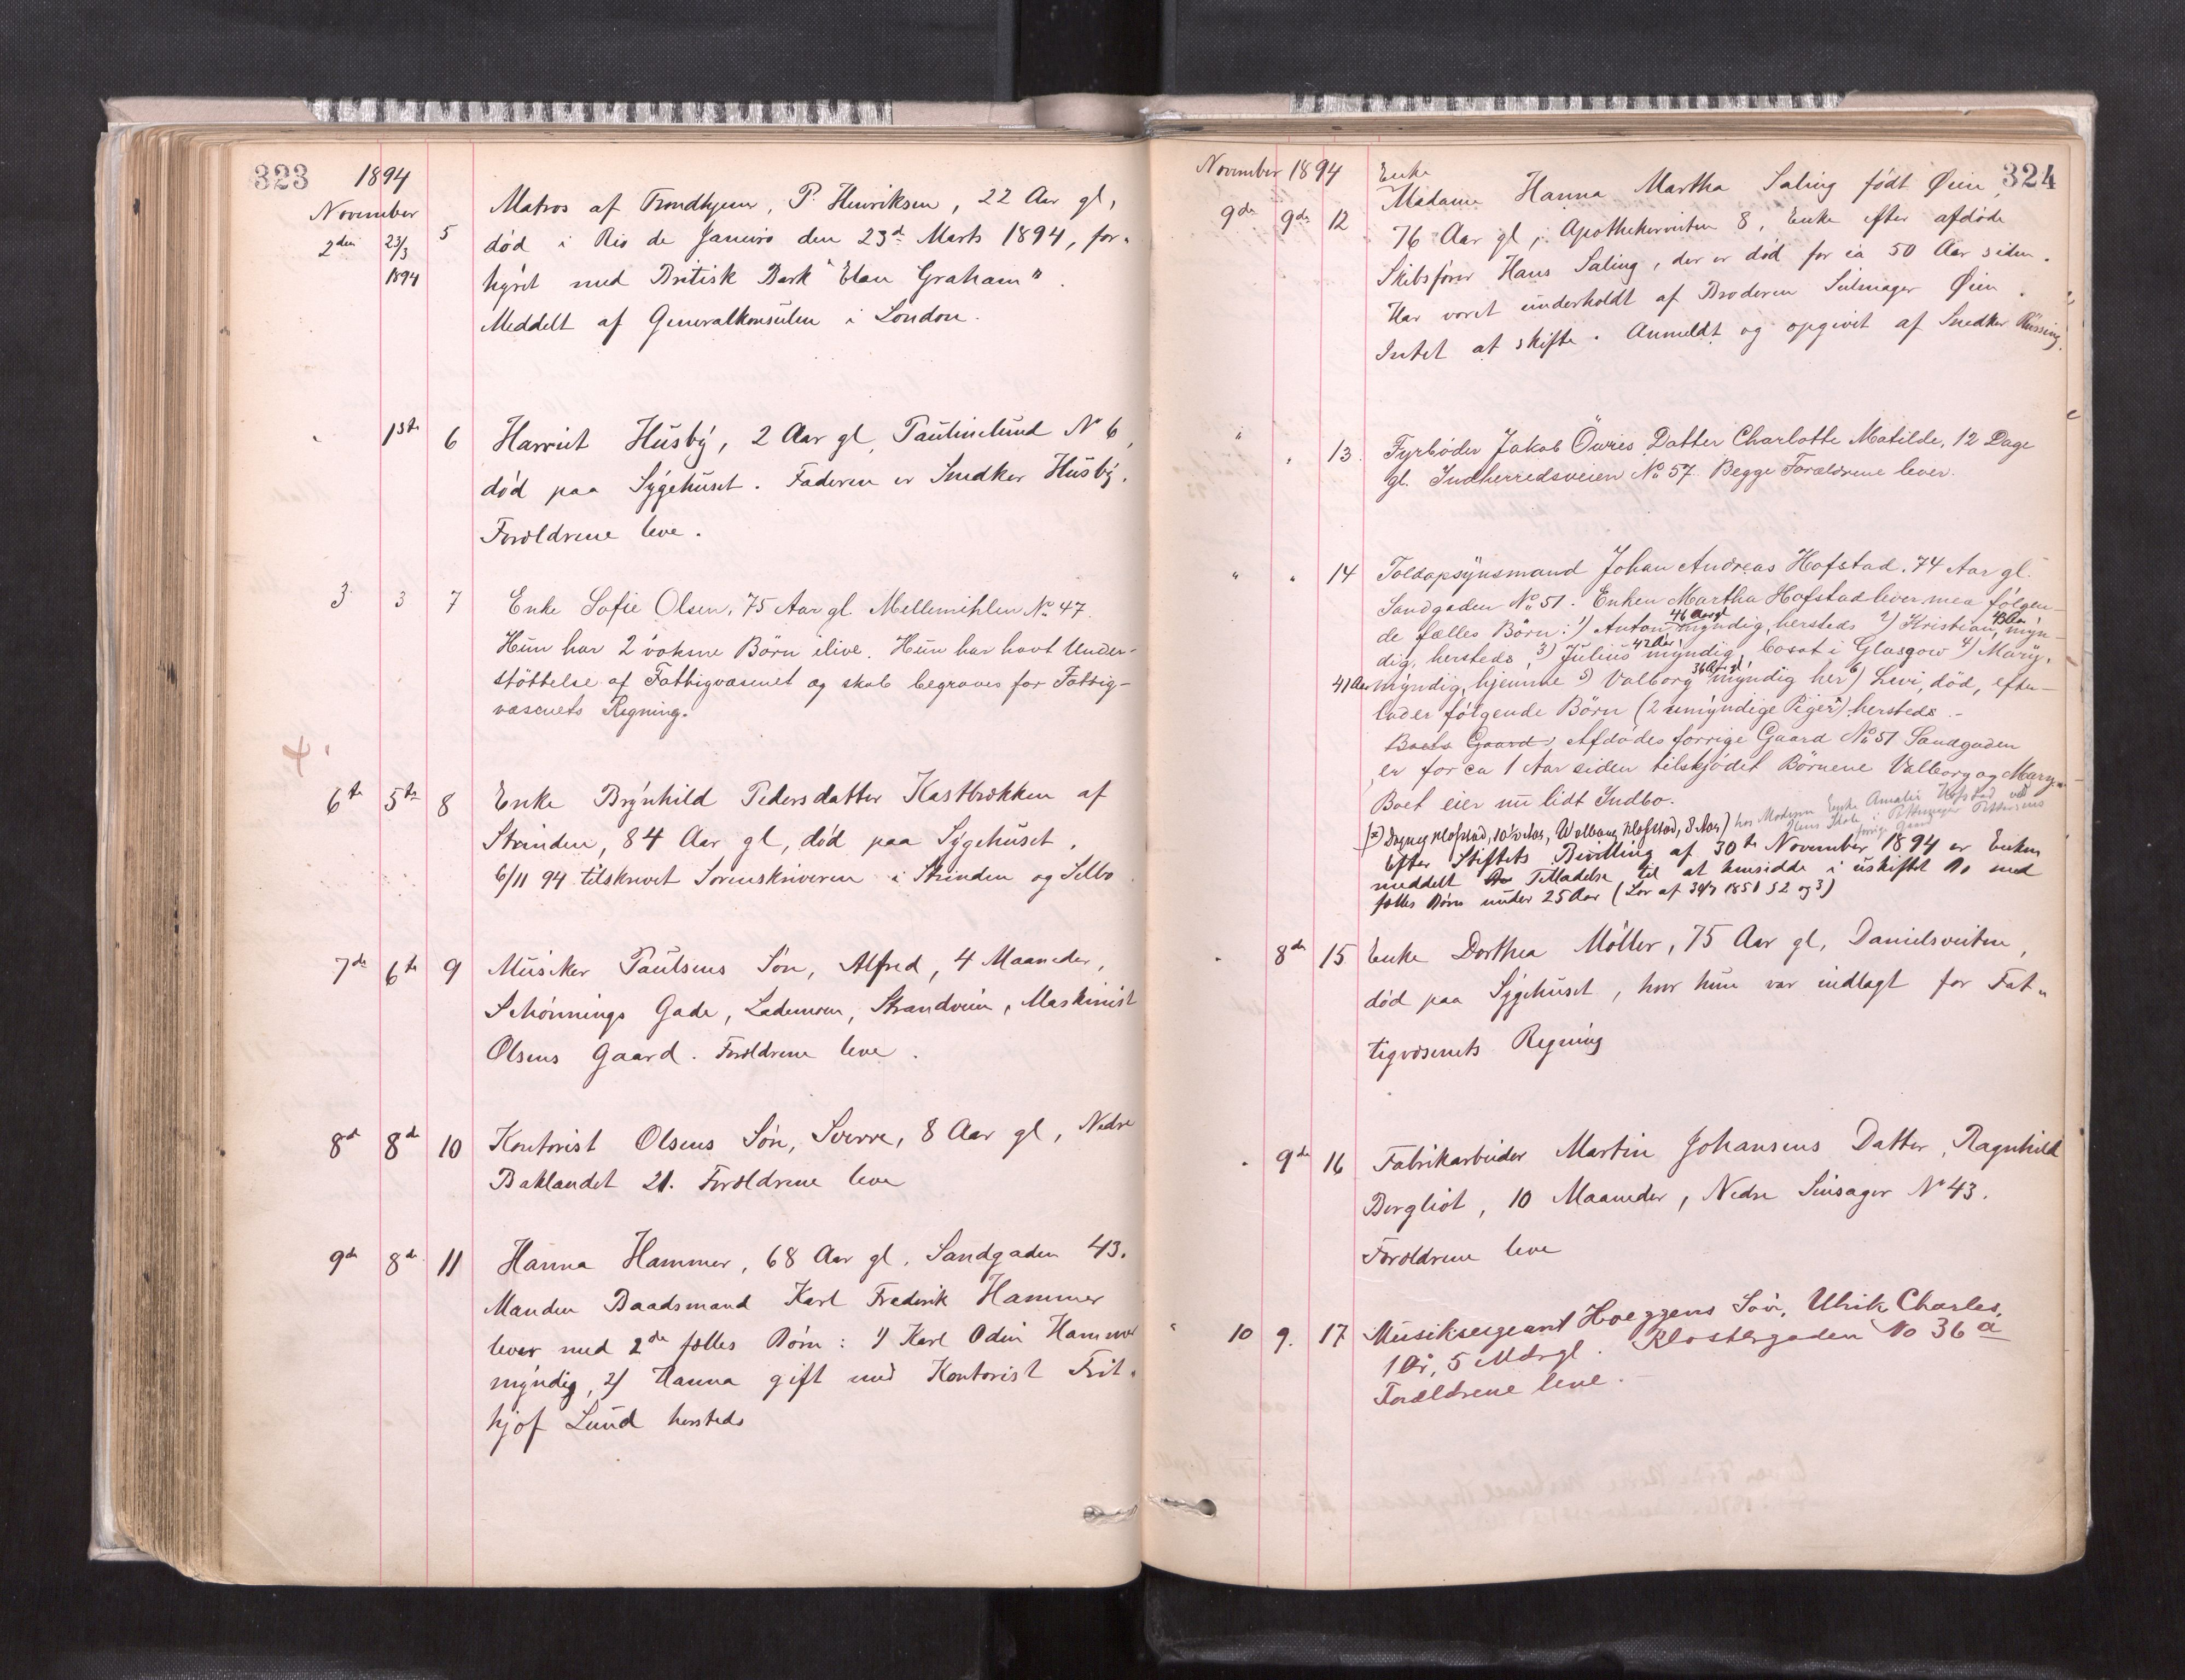 323
1894
November
2den 23/3 5 Matros af Trondhjem, P. Henriksen, 22 Aar gl,
1894
død i Rio de Janeiro den 23d Marts 1894, for-
hyret med Britisk Bark "Elan Graham".
Meddelt af Generalkonsulen i London.
1ste 6 Harriet Husby, 2 Aar gl, Paulinelund No 6,
død paa Sygehuset. Faderen er Snedker Husby.
Forældrene leve.
3 3 7 Enke Sofie Olsen, 75 Aar gl. Mellemihlen No 47.
Hun har 2 voksne Börn ilive. Hun har havt Under-
stöttelse af Fattigvæsenet og skal begraves for Fattig-
væsenets Regning.
6te 5te 8 Enke Brynhild Pedersdatter Kastbrækken af
Strinden, 84 Aar gl, død paa Sygehuset.
6/11 94 tilskrevet Sorenskriveren i Strinden og Selbo.
7de 6te 9 Musiker Paulsens Søn, Alfred, 4 Maaneder,
Schønnings Gade, Lademoen, Strandveien, Maskinist
Olsens Gaard. Forældrene leve.
8d 8de 10 Kontorist Olsens Søn, Sverre, 8 Aar gl, Nedre
Baklandet 21. Forældrene leve
9de 8de 11 Hanna Hammer, 68 Aar gl. Sandgaden 43.
Manden Baadsmand Karl Fredrik Hammer
lever med 2de fælles Børn: 1) Karl Odin Hammer
myndig, 2) Hanna gift med Kontorist Frit-
hjof Lund hersteds
324
November 1894
Enke
9de 9de 12 Madame Hanna Martha Saling født Øien,
76 Aar gl, Apothekerveiten 8, Enke efter afdøde
Skibsfører Hans Saling, der er død for ca 50 Aar siden.
Har været underholdt af Broderen Seilmager Øien.
Intet at skifte. Anmeldt og opgivet af Snedker Røssing.
" " 13. Fyrbøder Jakob Öwres Datter Charlotte Matilde, 12 Dage
gl. Indherredsveien No 57. Begge Forældrene lever.
" " 14 Toldopsynsmand Johan Andreas Hofstad. 74 Aar gl.
Sandgaden No 51. Enken Martha Hofstad lever med følgen-
46 Aar gl 43 Aar
de fælles Börn: 1) Anton myndig, hersteds 2) Kristian, myn-
42 Aar
dig, hersteds, 3) Julius myndig, bosat i Glasgow 4) Mary,
36 Aar gl
41 Aar myndig, hjemme 5) Valborg myndig her 6) Levi, död, efter-
lader følgende Börn (2 umyndige Piger) hersteds.-
Boets Gaard, Afdødes forrige Gaard No 51 Sandgaden
er for ca 1 Aar siden tilskjødet Börnene Valborg og Mary.-
Boet eier nu lidt Indbo.
(x) Dagny Hofstad, 10½ Aar, Walborg Hofstad, 8 Aar) hos Moderen Enke Amalie Hofstad ved
Ilens Skole i Pettersens
forrige Gaard
Efter Stiftets Bevilling af 30te November 1894 er Enken
meddelt Tilladelse til at hensidde i uskiftet Bo med
fælles Børn under 25 Aar (Lov af 30/7 1851 § 2 og 3)
" 8de 15 Enke Dorthea Möller, 75 Aar gl, Danielsveiten,
død paa Sygehuset, hvor hun var indlagt for Fat-
tigvæsenets Regning
" 9de 16 Fabrikarbeider Martin Johansens Datter, Ragnhild
Bergliot, 10 Maaneder, Nedre Singsager No 43.
Forældrene leve
" 10 9. 17 Musiksergeant Hoeggens Søn, Ulrik Charles,
1 År, 5 Mdr gl. Klostergaden No 36 a
Forældrene leve.-